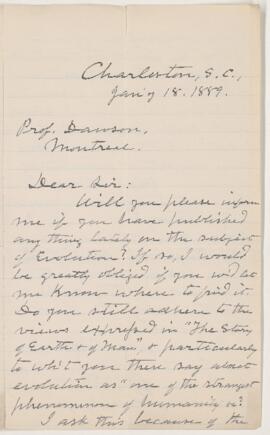 Charleston, S.C.,
Jan'y 18. 1889.
Prof. Dawson,
Montreal.
Dear Sir:
Will you please inform
me if you have published
any thing lately on the subject
of Evolution? If so, I would
be greatly obliged if you wd let
me know where to find it.
Do you still adhere to the
views expressed in "The Story
of Earth & of Man", & particularly
to wh't you there say about
evolution as "one of the strangest
phenomena of humanity"?
I ask this because of the